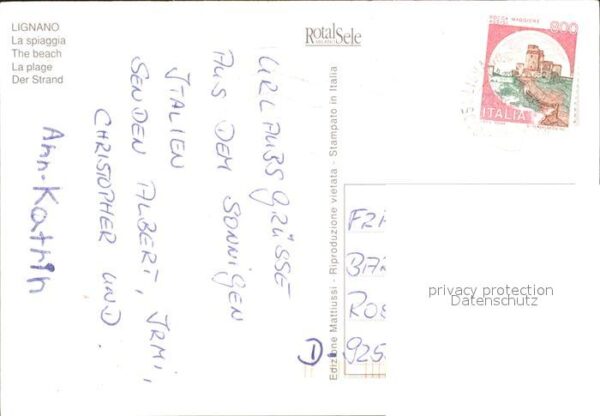 LIGNANO
La spiaggia
The beach
La plage
Der Strand
RotalSele
URLAUBSGRÜSSE
AUS DEM SONNIGEN
ITALIEN
SENDEN ALBERT, IRMI,
CHRISTOPHER UND
Ann-Kathrin
Edizione Mattiussi - Riproduzione vietata - Stampato in Italia
ROCCA MAGGIORE
800
ITALIA
privacy protection
Datenschutz
D-
925